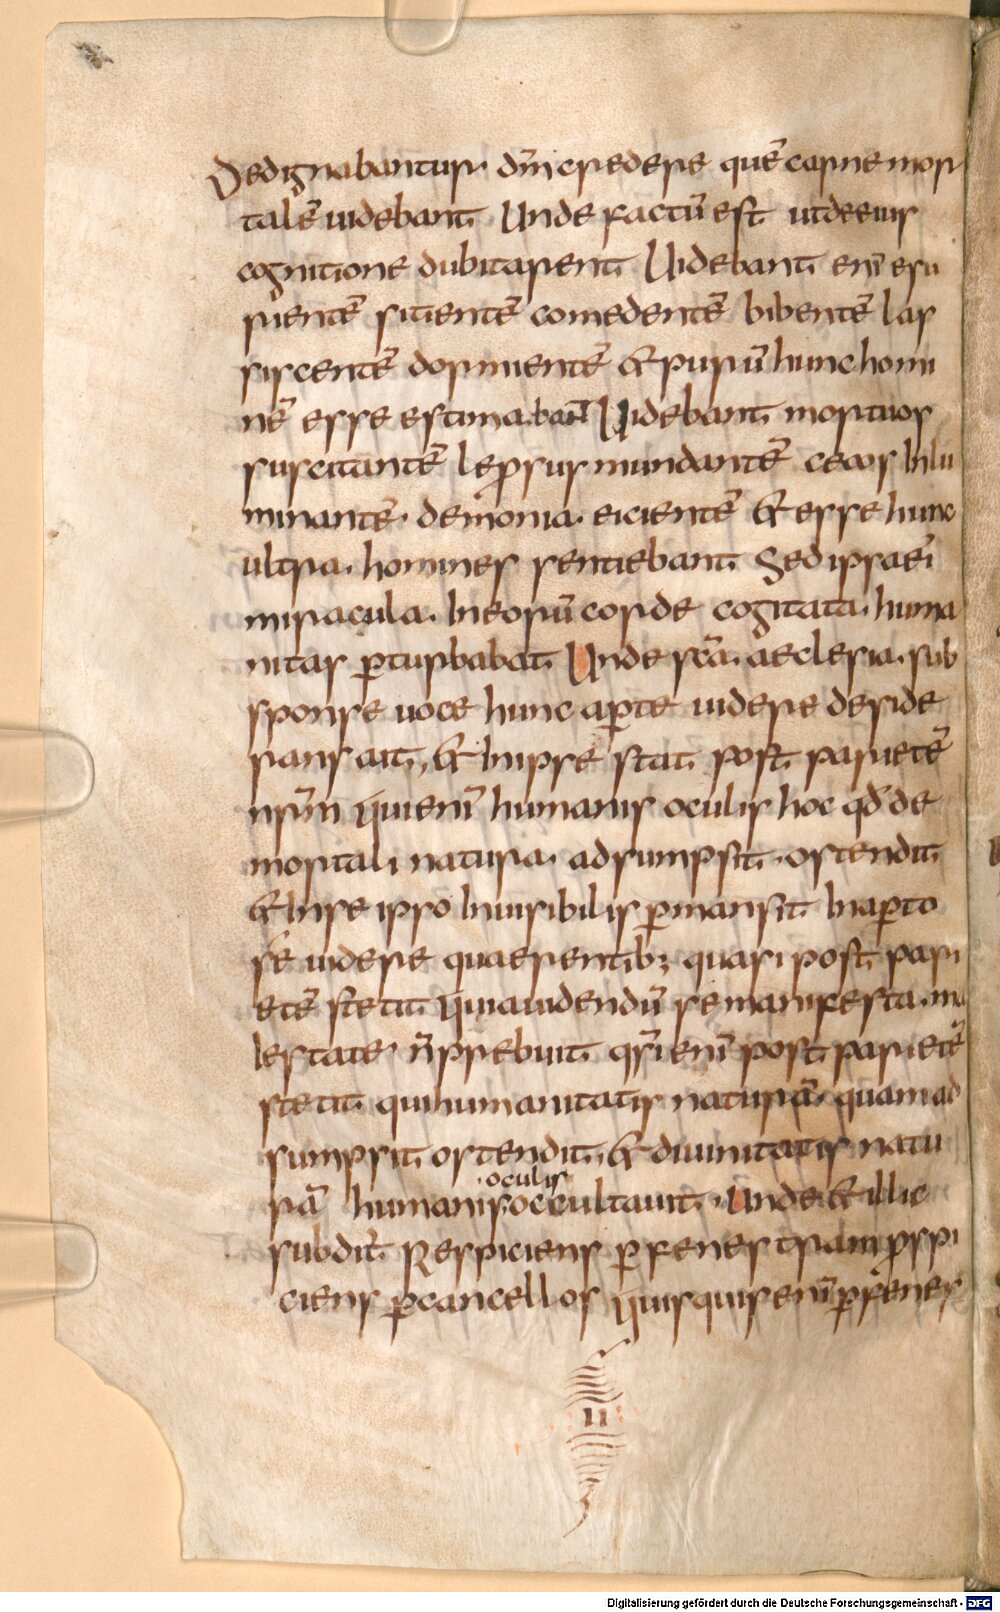 Dedignabantur. dm̄ credere quē carne mor
talē uidebant. Unde factū est ut de eius
cognitione dubitarent. Uidebant enī esu
rientē sitientē comedentē bibentē las
siscentē dormientē & purū hunc homi
nē esse estimabant Uidebant mortuos
suscitantē leprsus mundantē cecos Inlu
minantē. demonia. eicientē & esse hunc
ultra. homines sentiebant. Sed ipsa eī
miracula. In eorū corde cogitata. huma
nitas ꝑturbabat. Unde sc̄a. aeclesia. sub
sponse uoce hunc aꝑte uidere deside
rans ait, & In ipse stat post parietē
nsr̄m Qui enī humanis oculis hoc qđ de
mortali natura. adsumpsit. ostendit.
& In se ipso Inuisibilis ꝑmansit Inaꝑto
se uidere quaerentib; quasi post pari
etē stetit Quia uidendū se manifesta. ma
Iestate n̄ prebuit qsī enī post parietē
stetit qui humanitatis naturā. quam ad
sumpsit, ostendit, & diuinitatis natu
oculis
rā humanis occultauit. Unde & illic
subdit. Respiciens ꝑ fenestram prspi
ciens ꝑ cancellos Quisquis enī ꝑ fenes
II
Digitalisierung gefördert durch die Deutsche Forschungsgemeinschaft - DFG